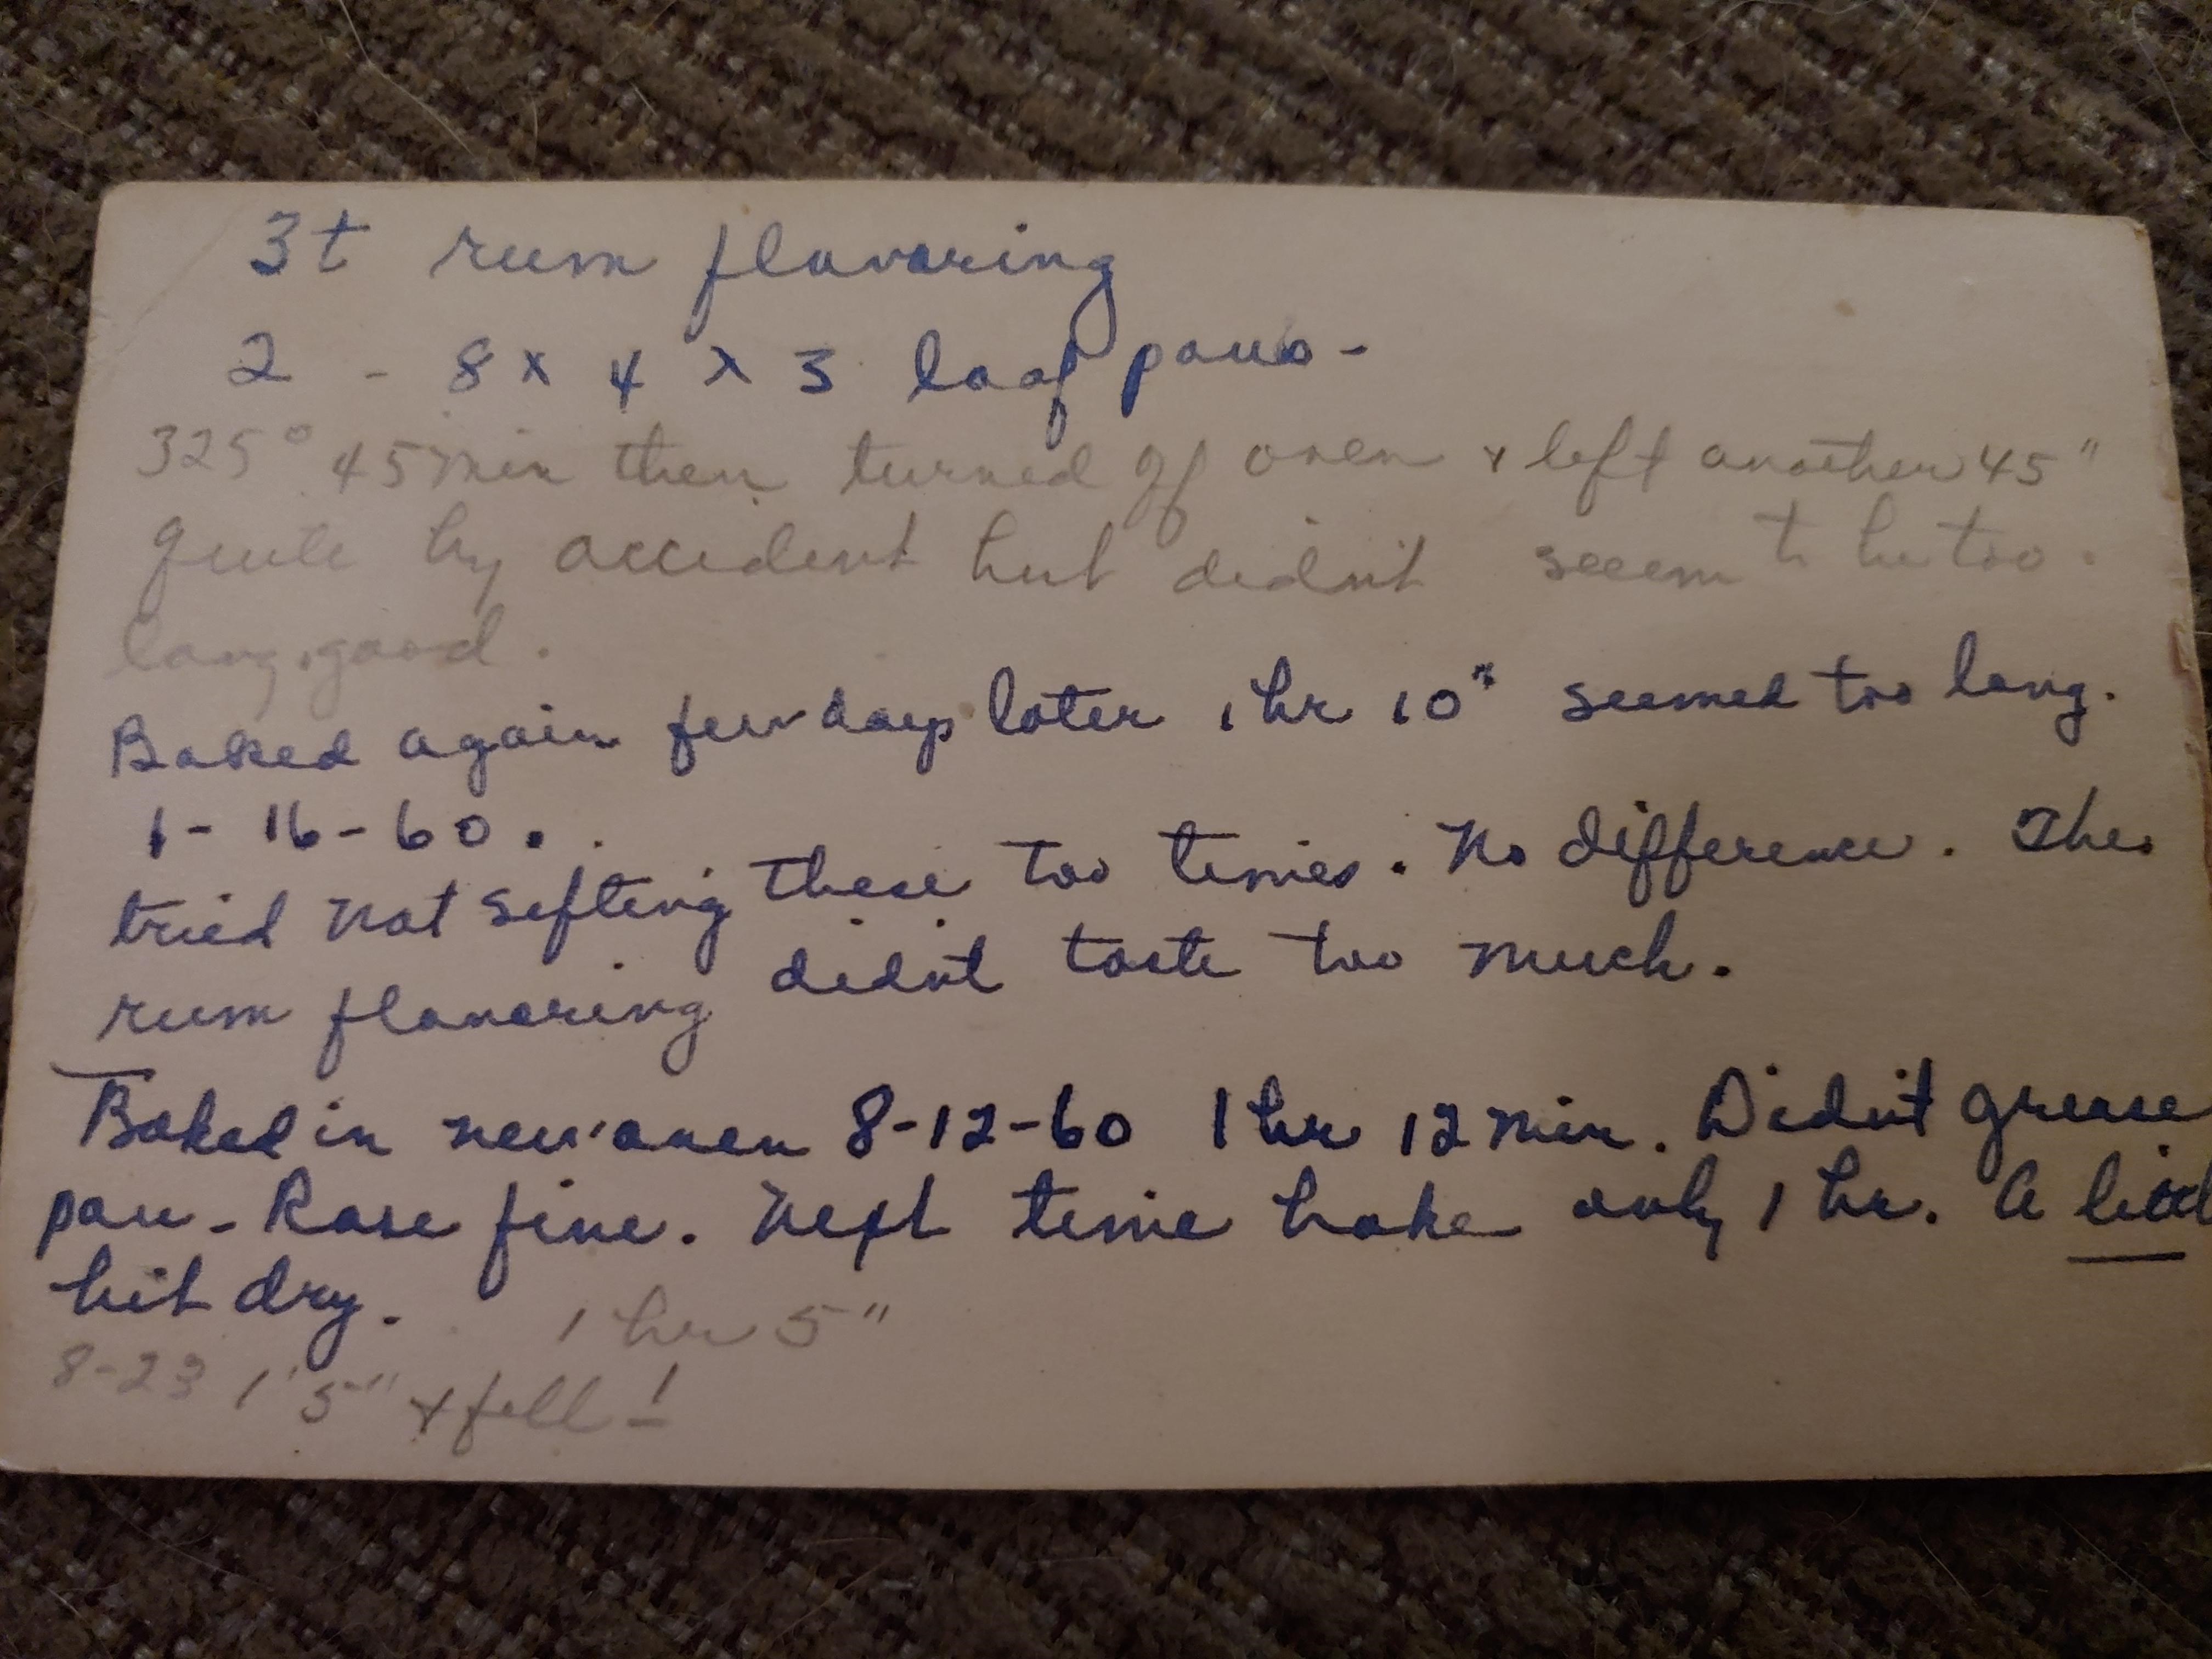 3t rum flavoring
2 - 8 x 4 x 3 loaf pans -
325° 45 min then turned off oven & left another 45"
quite by accident but didn't seem to be too
long. good.
Baked again few days later 1 hr 10" seemed too long.
1-16-60.
tried not sifting these too times. No difference. The
rum flavoring didn't taste too much.
Baked in new oven 8-12-60 1 hr 12 min. Didn't grease
pan - Rose fine. Next time bake only 1 hr. A
bit dry. 1 hr 5"
8-23 1' 5" & fell!